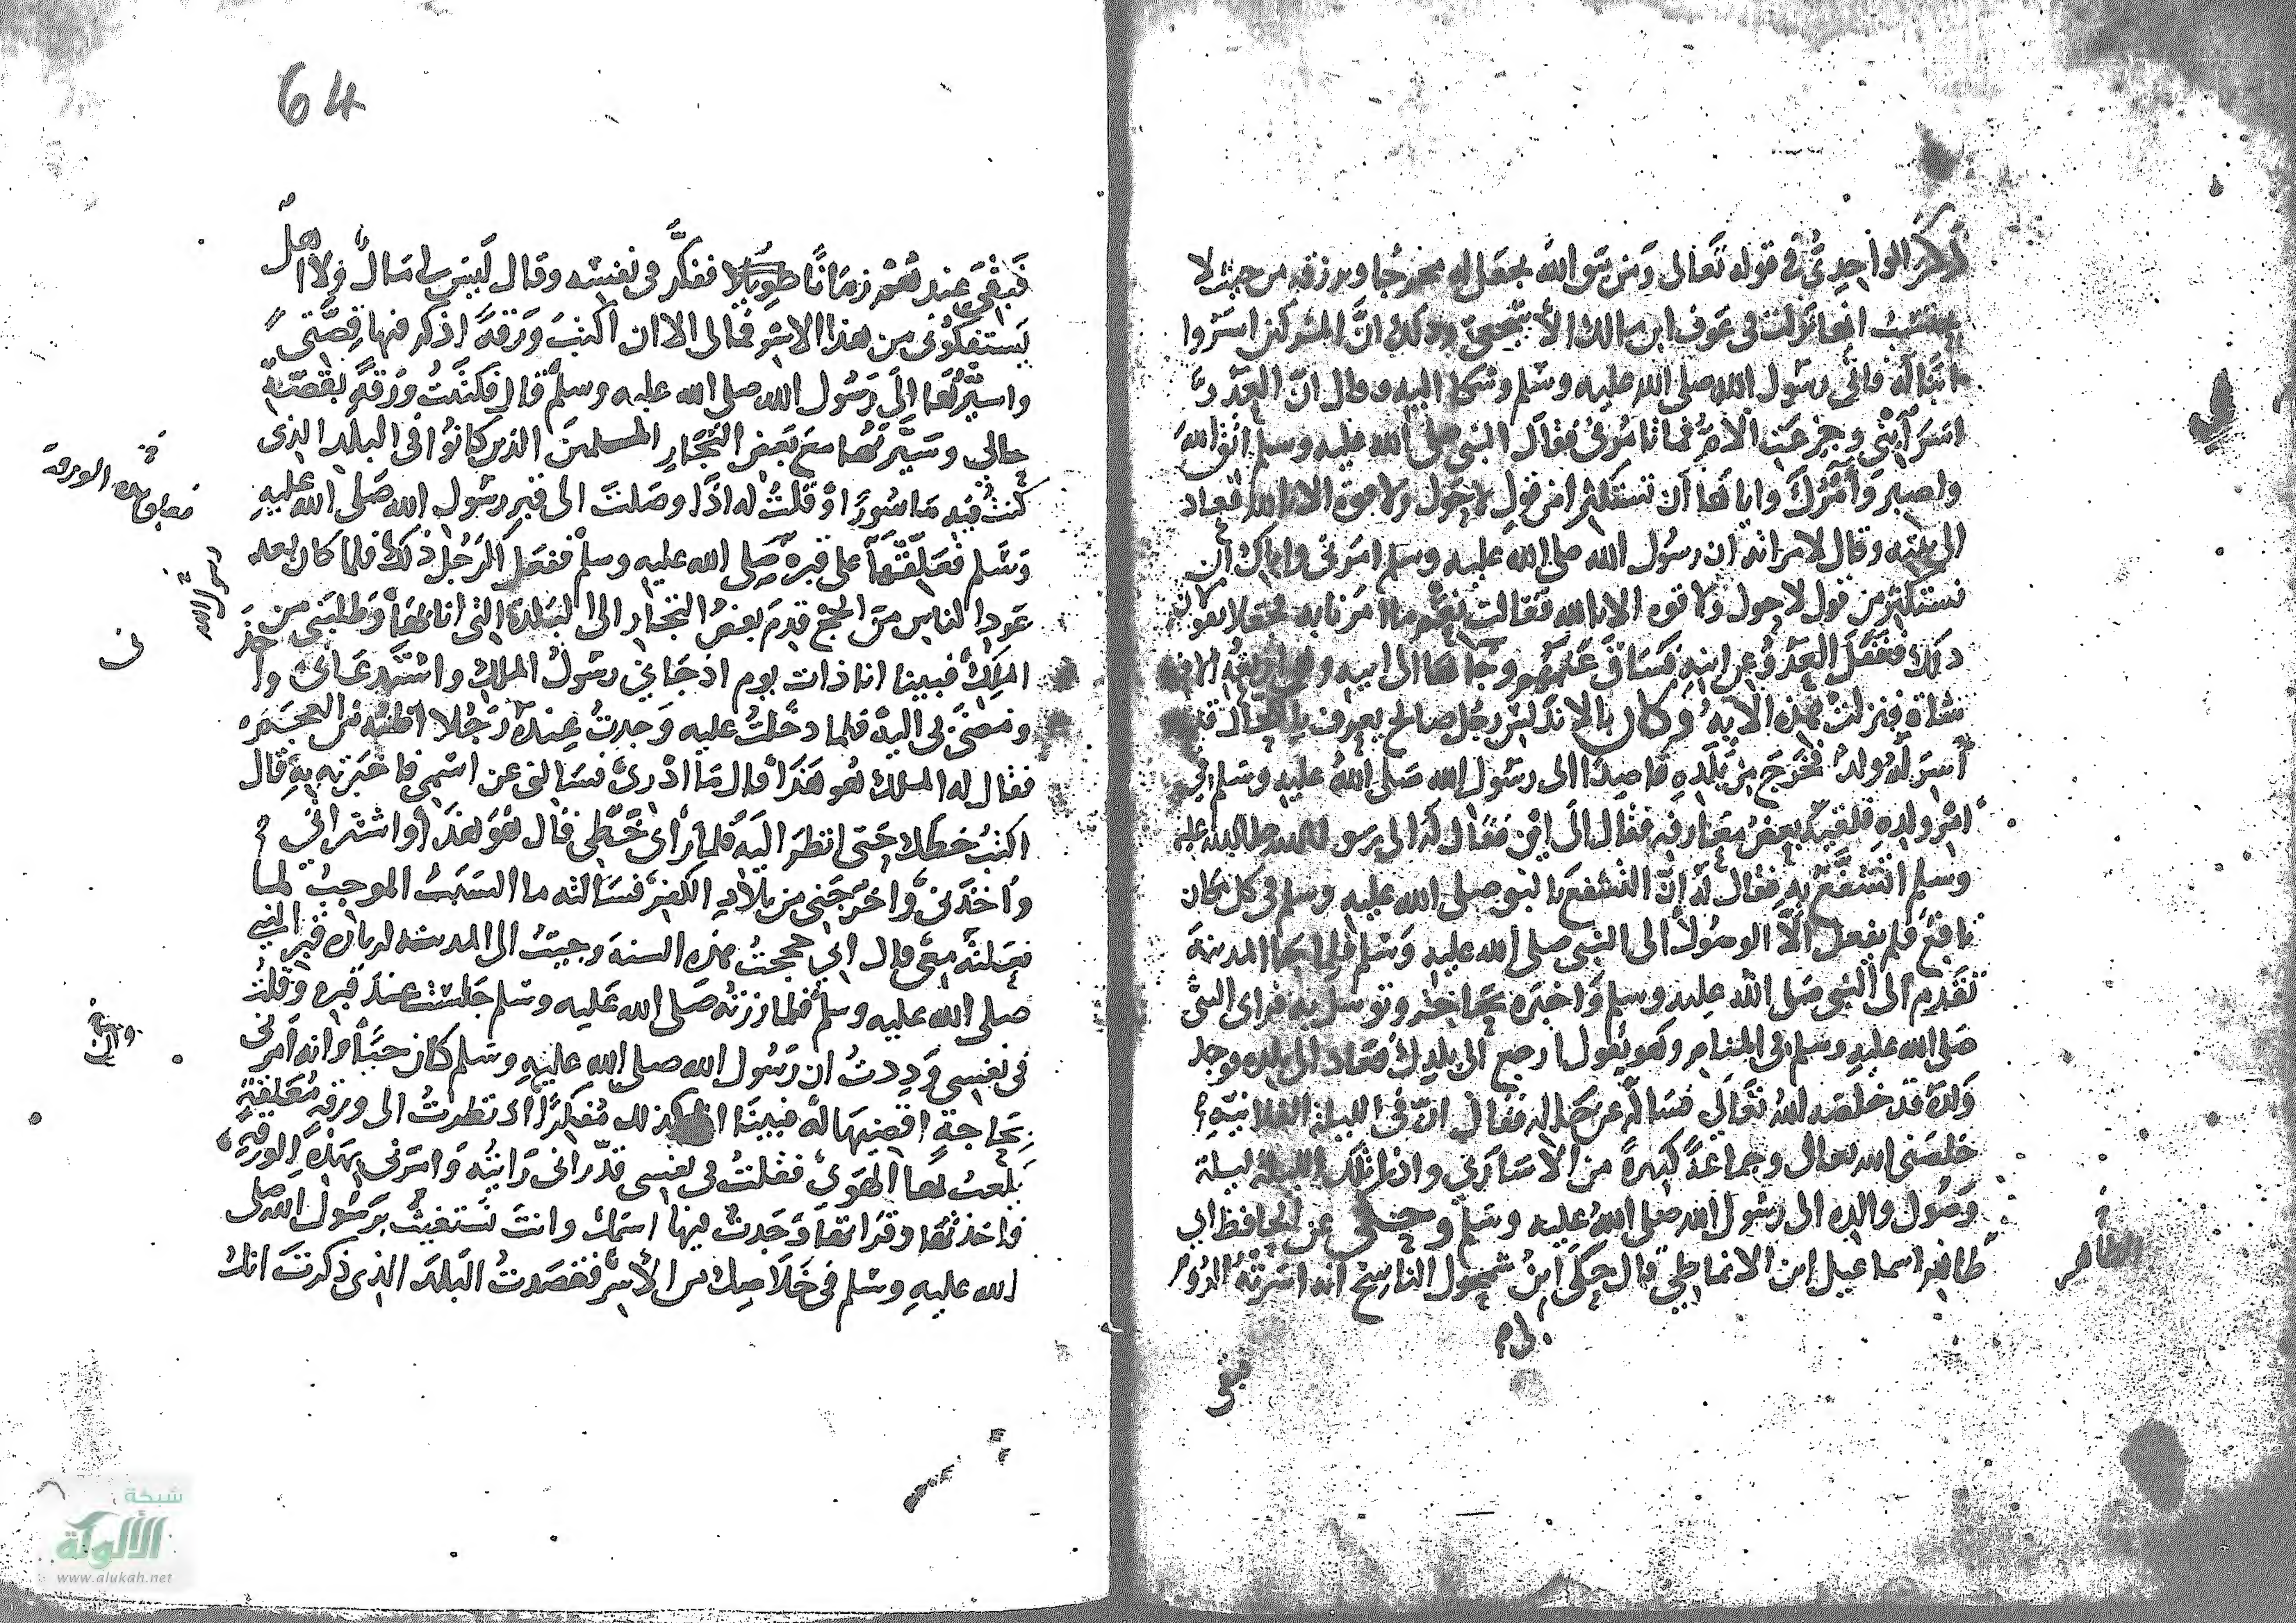 ذكر الواحدي في قوله تعالى ومن يتق الله يجعل له مخرجا ويرزقه من حيث لا
يحتسب انها نزلت في عوف ابن مالك الأشجعي وذلك انّ المشركين اسروا
ابنا له فاتى رسول الله صلى الله عليه وسلم وشكا اليه وقال انّ العدوّ
اسر ابني وجزعت الامّ فما تامرني فقال النبي صلى الله عليه وسلم اتق الله
واصبر وآمرك واياها أن تستكثرا من قول لا حول ولا قوة الا بالله فعاد
الى بيته وقال لامراته ان رسول الله صلى الله عليه وسلم امرني واياك أن
نستكثر من قول لا حول ولا قوه الا بالله فقالت نعم ما امرنا به فجعلا يقولان
ذلك فغفل العدوّ عن ابنه فساق غنمهم وجا بها الى ابيه وهي اربعة الاف
شاة فنزلت هذه الآية وكان بالاندلس رجل صالح يعرف
أسر له ولد فخرج من بلده قاصدا الى رسول الله صلى الله عليه وسلم في
امر ولده فلقيه بعض معارفه فقال الى اين فقال له الى رسول الله صلى الله عليه
وسلم اتشفّع به فقال له انّ التشفع بالنبي صلى الله عليه وسلم في كل مكان
نافع فلم يفعل الّا الوصول الى النبي صلى الله عليه وسلم فلما جا المدينة
تقدم الى النبي صلى الله عليه وسلم واخبره بحاجته وتوسل به فراى النبي
صلى الله عليه وسلم في المنام وهو يقول ارجع الى بلدك فعاد الى بلده فوجد
ولده قد خلصه الله تعالى فساله عن حاله فقال انّ في الليلة الفلانية
خلصني الله تعالى وجماعة كبيرة من الاسارى واذا تلك الليلة ليلة
وصول والده الى رسول الله صلى الله عليه وسلم وحكي عن الحافظ ابي
طاهر اسماعيل ابن الانماطي قال حكى ابن شمول الناسخ انه اسرته الروم
الطاهر
فبقى
64
فبقى عندهم زمانًا طويلا ففكّر في نفسه وقال ليس لي مال ولا اهل
يستفكوني من هذا الاسر فما لي الا ان اكتب ورقة اذكر فيها قصّتي
واسيّرها الى رسول الله صلى الله عليه وسلم قال فكتبت ورقة بقصّة
حالي وسيّرتها مع بعض التجّار المسلمين الذين كانوا في البلد الذي
كنت فيه ماسورا وقلت له اذا وصلت الى قبر رسول الله صلى الله عليه
وسلم فعلّقها على قبره صلى الله عليه وسلم ففعل الرجل ذلك فلما كان بعد
عود الناس من الحج قدم بعض التجار الى البلدة التي انا بها وطلبني من
الملك فبينا انا ذات يوم اذ جاني رسول الملك واستدعاني واخذ
ومضى بي اليه فلما دخلت عليه وجدت عنده رجلا اظنه من العجم
فقال له الملك هو هذا قال ما ادري فسالني عن اسمي فاخبرته به قال
اكتب خطك حتى انظر اليه فلما رأى خطي قال هو هذا واشتراني
واخذني واخرجني من بلاد الكفر فسالته ما السبب الموجب لما
فعلته معي قال اني حججت هذه السنة وجيت الى المدينة لزيارة قبر النبي
صلى الله عليه وسلم فلما زرته صلى الله عليه وسلم جلست عند قبره وقلت
في نفسي وددت ان رسول الله صلى الله عليه وسلم كان حيّا وانه امرني
بحاجة اقضيها له فبينا انا كذلك مفكرا اذ نظرت الى ورقة معلقة
يلعب بها الهوى فقلت في نفسي قدّر اني رايته وامرني بهذه الورقة
فاخذتها وقراتها وجدت فيها اسمك وانت تستغيث برسول الله صلى
الله عليه وسلم في خلاصك من الأسر فقصدت البلد الذي ذكرت انك
شبكة
الألوكة
www.alukah.net